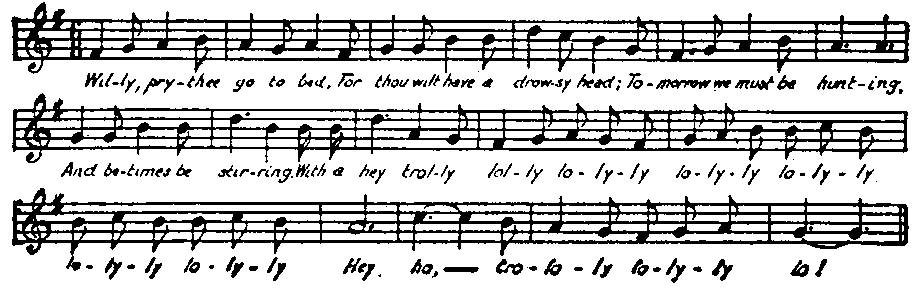 Wil-ly, pry-thee go to bed, For thou wilt have a drow-sy head; To-morrow we must be hunt-ing,
And be-times be stir-ring. With a hey trol-ly lol-ly lo-ly-ly lo-ly-ly lo-ly-ly
lo-ly-ly lo-ly-ly Hey, ho, — tro-lo-ly lo-ly-ly lo!